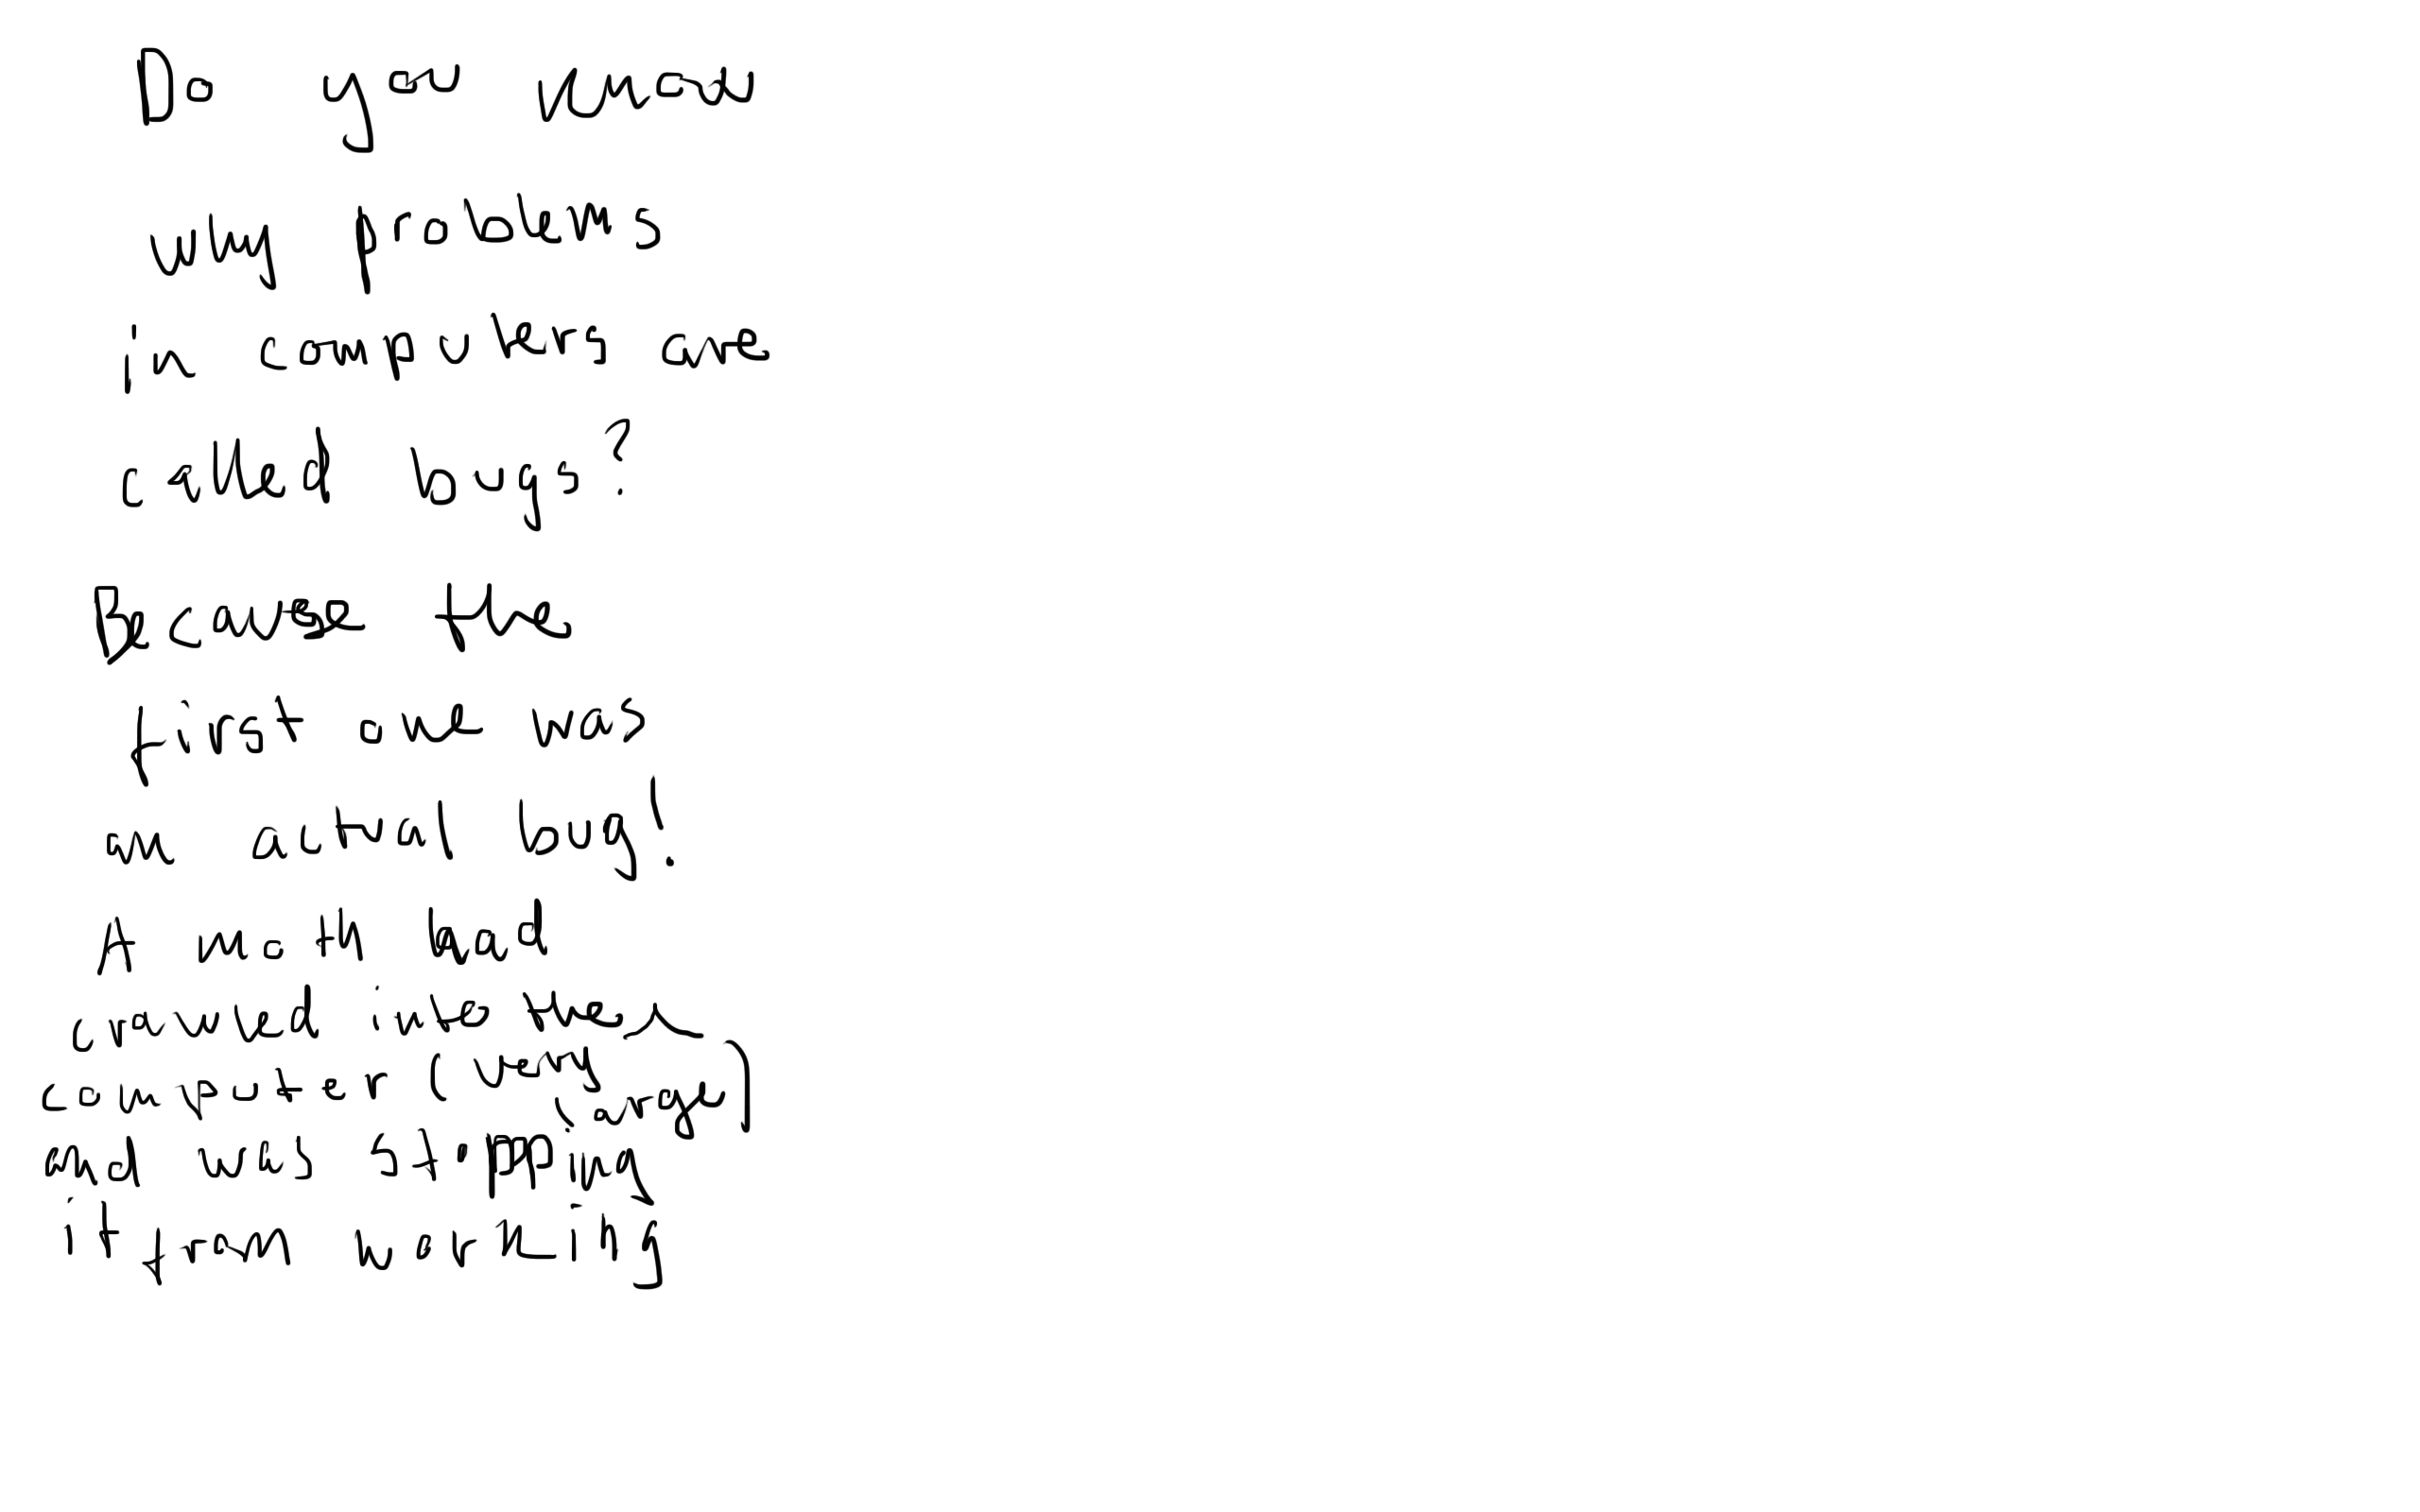 Do you know
why problems
in computers are
called bugs?
Because the
first one was
an actual bug!
A moth had
crawled into the
computer (very
large)
and was stopping
it from working